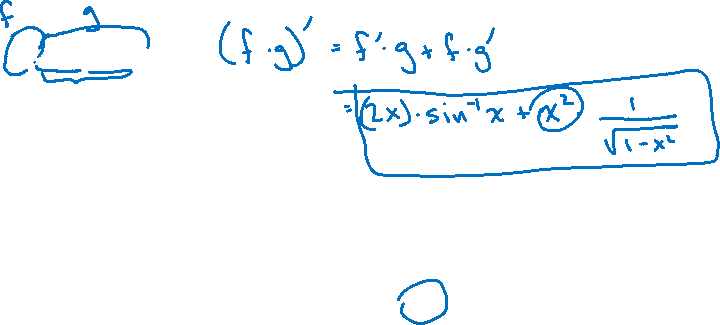 f g
(f·g)' = f'·g + f·g'
= (2x)·sin⁻¹x + x² 1/√(1-x²)